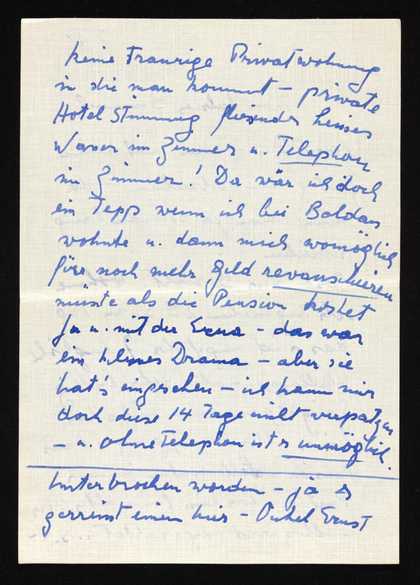 keine traurige Privatwohnung
in die man kommt – private
Hotel Stimmung fliessendes heisses
Wasser im Zimmer u. Telephon
im Zimmer! Da wär ich doch
ein Tepp wenn ich bei Baldars
wohnte u. dann mich womöglich
fürs noch mehr Geld revanchieren
müsste als die Pension kostet
Ja u. mit der – das war
ein kleines Drama – aber sie
hat's eingesehen – ich kann mir
doch diese 14 Tage nicht verpatzen
– u. ohne Telephon ist's unmöglich.
Unterbrochen worden – ja es
zerreisst einen hier – Onkel Ernst